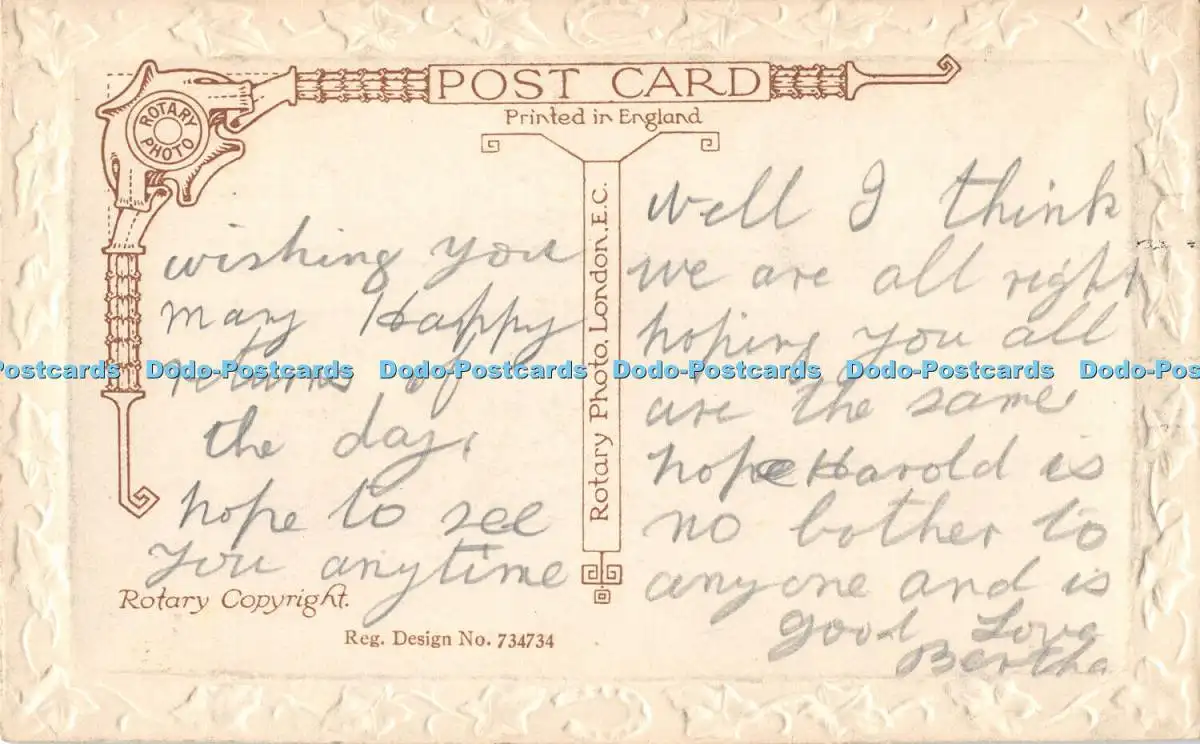 POST CARD
Printed in England
ROTARY PHOTO
wishing you
many Happy
returns of
the day.
hope to see
you anytime
Rotary Photo, London, E.C.
well I think
we are all right
hoping you all
are the same
hope Harold is
no bother to
anyone and is
good Love
Bertha
Rotary Copyright.
Reg. Design No. 734734
-Postcards Dodo-Postcards Dodo-Postcards Dodo-Postcards Dodo-Postcards Dodo-Pos